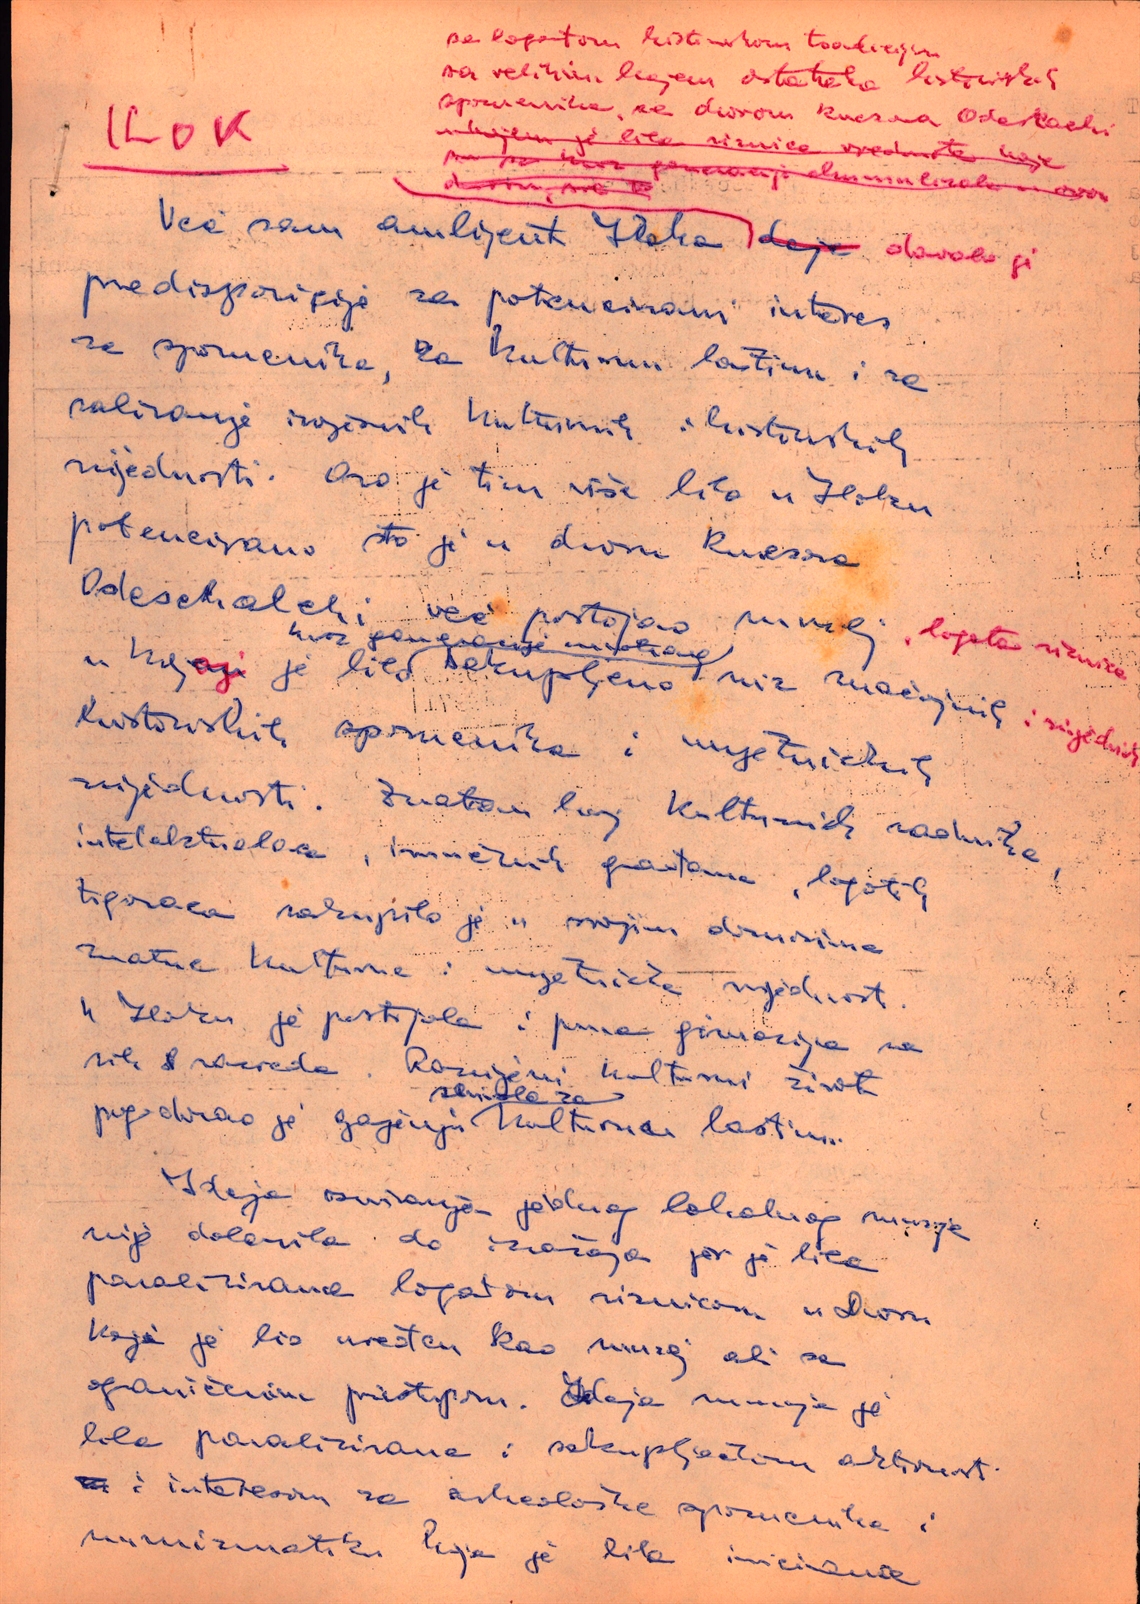 sa bogatom historijskom tradicijom
sa velikim brojem ostataka historijskih
spomenika, sa dvorom kneza Odeskalchi
u kojem je bila riznica vrednota koje
su se kroz generacije akumulirale u ovom
dvorcu, sve
ILOK
Već sam ambijent Iloka daje davao je
predispozicije za potencirani interes
za spomenike, za kulturnu baštinu i za
sabiranje izvjesnih kulturnih i historijskih
vrijednosti. Ovo je tim više bilo u Iloku
potencirano što je u dvoru knezova
Odeschalchi već postojao muzej, bogata riznica
kroz generacije
u kojoj je bilo sakupljeno niz značajnih i vrijednih
historijskih spomenika i umjetničkih
vrijednosti. Znatan broj kulturnih radnika,
intelektualaca, imućnih građana, bogatih
trgovaca sakupilo je u svojim domovima
znatne kulturne i umjetničke vrijednosti.
U Iloku je postojala i puna gimnazija sa
svih 8 razreda. Razvijeni kulturni život
smisla za
pogodovao je gajenju kulturne baštine.
Ideja osnivanja jednog lokalnog muzeja
nije dolazila do izražaja jer je bila
paralizirana bogatom riznicom u Dvoru
koja je bio uređen kao muzej ali sa
ograničenim pristupom. Ideja muzeja je
bila paralizirana i sakupljačkom aktivnosti
i interesom za arheološke spomenike i
numizmatiku koja je bila inicirana